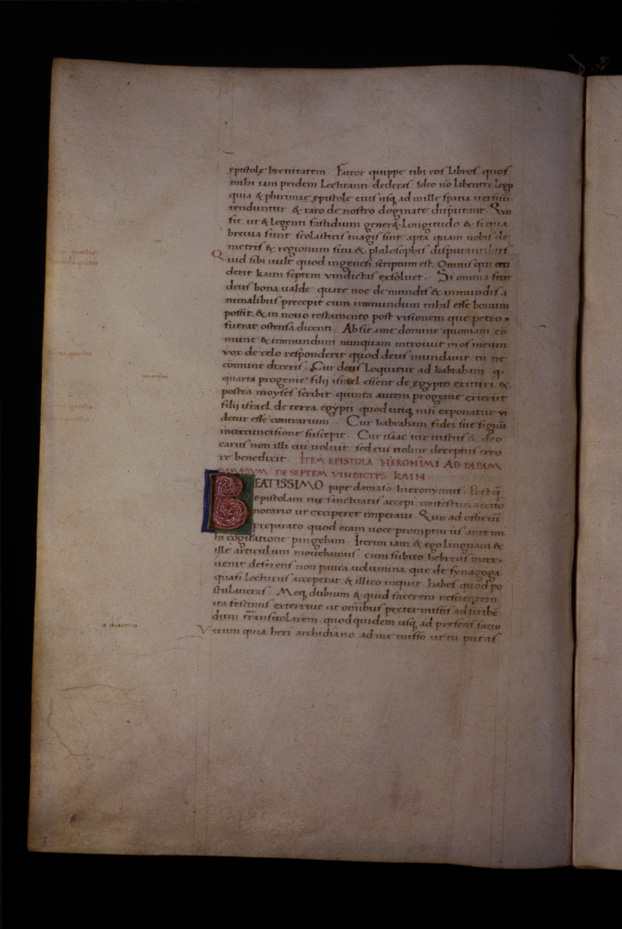 epistolę breuitatem. Fateor quippe tibi eos libros quos
mihi iam pridem Lactantii dederas. Ideo nō libenter lego
quia & plurimae epistole eius usq; ad mille spatia uersuū
tenduntur & raro de nostro dogmate disputant. Quo
fit ut & legenti fastidium generet Longitudo & si qua
breuia sunt scolasticis magis sint apta quam nobis de
metris & regionum situ & philosophis disputantibus.
Quid sibi uult quod in genesi scriptum est. Omnis qui occi
derit kain septem uindictas exsoluet. Si omnia fecit
deus bona ualde quare noe de mundis & inmundis a
nimalibus precepit cum inmundum nihil esse bonum
possit. & in nouo testamento post uisionem que petro
fuerat ostensa dicenti. Absit a me domine quoniam cō
mune & inmundum nunquam introiuit in os meum
uox de celo responderit quod deus mundauit tu ne
comune dixeris. Cur deus Loquitur ad habraham q
quarta progenie filii israel essent de egypto exituri. &
postea moyses scribit quinta autem progenie exierūt
filii israel de terra egypti quod utiq; nisi exponatur ui
detur esse contrarium. Cur habraham fidei sue signū
in circuncisione suscepit. Cur isaac uir iustus & deo
carus non illi cui uoluit sed cui noluit deceptus erro
re benedixit. ITEM EPISTOLA HIERONIMI AD PAPAM
DAMASUM DE SEPTEM VINDICTIS KAIN
BEATISSIMO pape damaso hieronymus. Postq̄
epistolam tuę sanctitatis accepi confestim accito
notario ut exciperet imperaui. Quo ad officiū
preparato quod eram uoce prompturus ante mi
hi cogitatione pingebam. Iterim iam & ego linguam &
ille articulum mouebamus cum subito hebreus inter
uenit deferens non pauca uolumina que de synagoga
quasi Lecturus acceperat & illico inquit habes quod po
stulaueras. Meq; dubium & quid facerem nescientem
ita festinus exterruit ut omnibus pretermissis ad scribē
dum transuolarem quod quidem usq; ad presens facio
Verum quia heri archidiano ad me misso ut tu putas